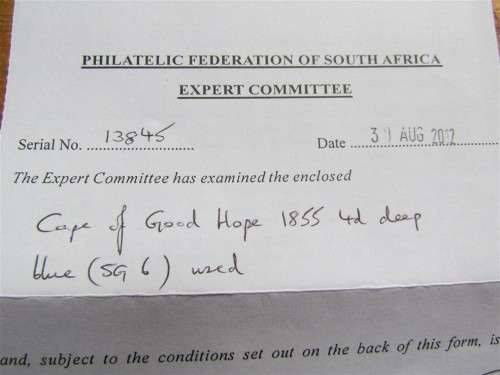 PHILATELIC FEDERATION OF SOUTH AFRICA
EXPERT COMMITTEE
Serial No. 13845 Date 30 AUG 2012
The Expert Committee has examined the enclosed
Cape of Good Hope 1855 4d deep
blue (SG 6) used
and, subject to the conditions set out on the back of this form, is